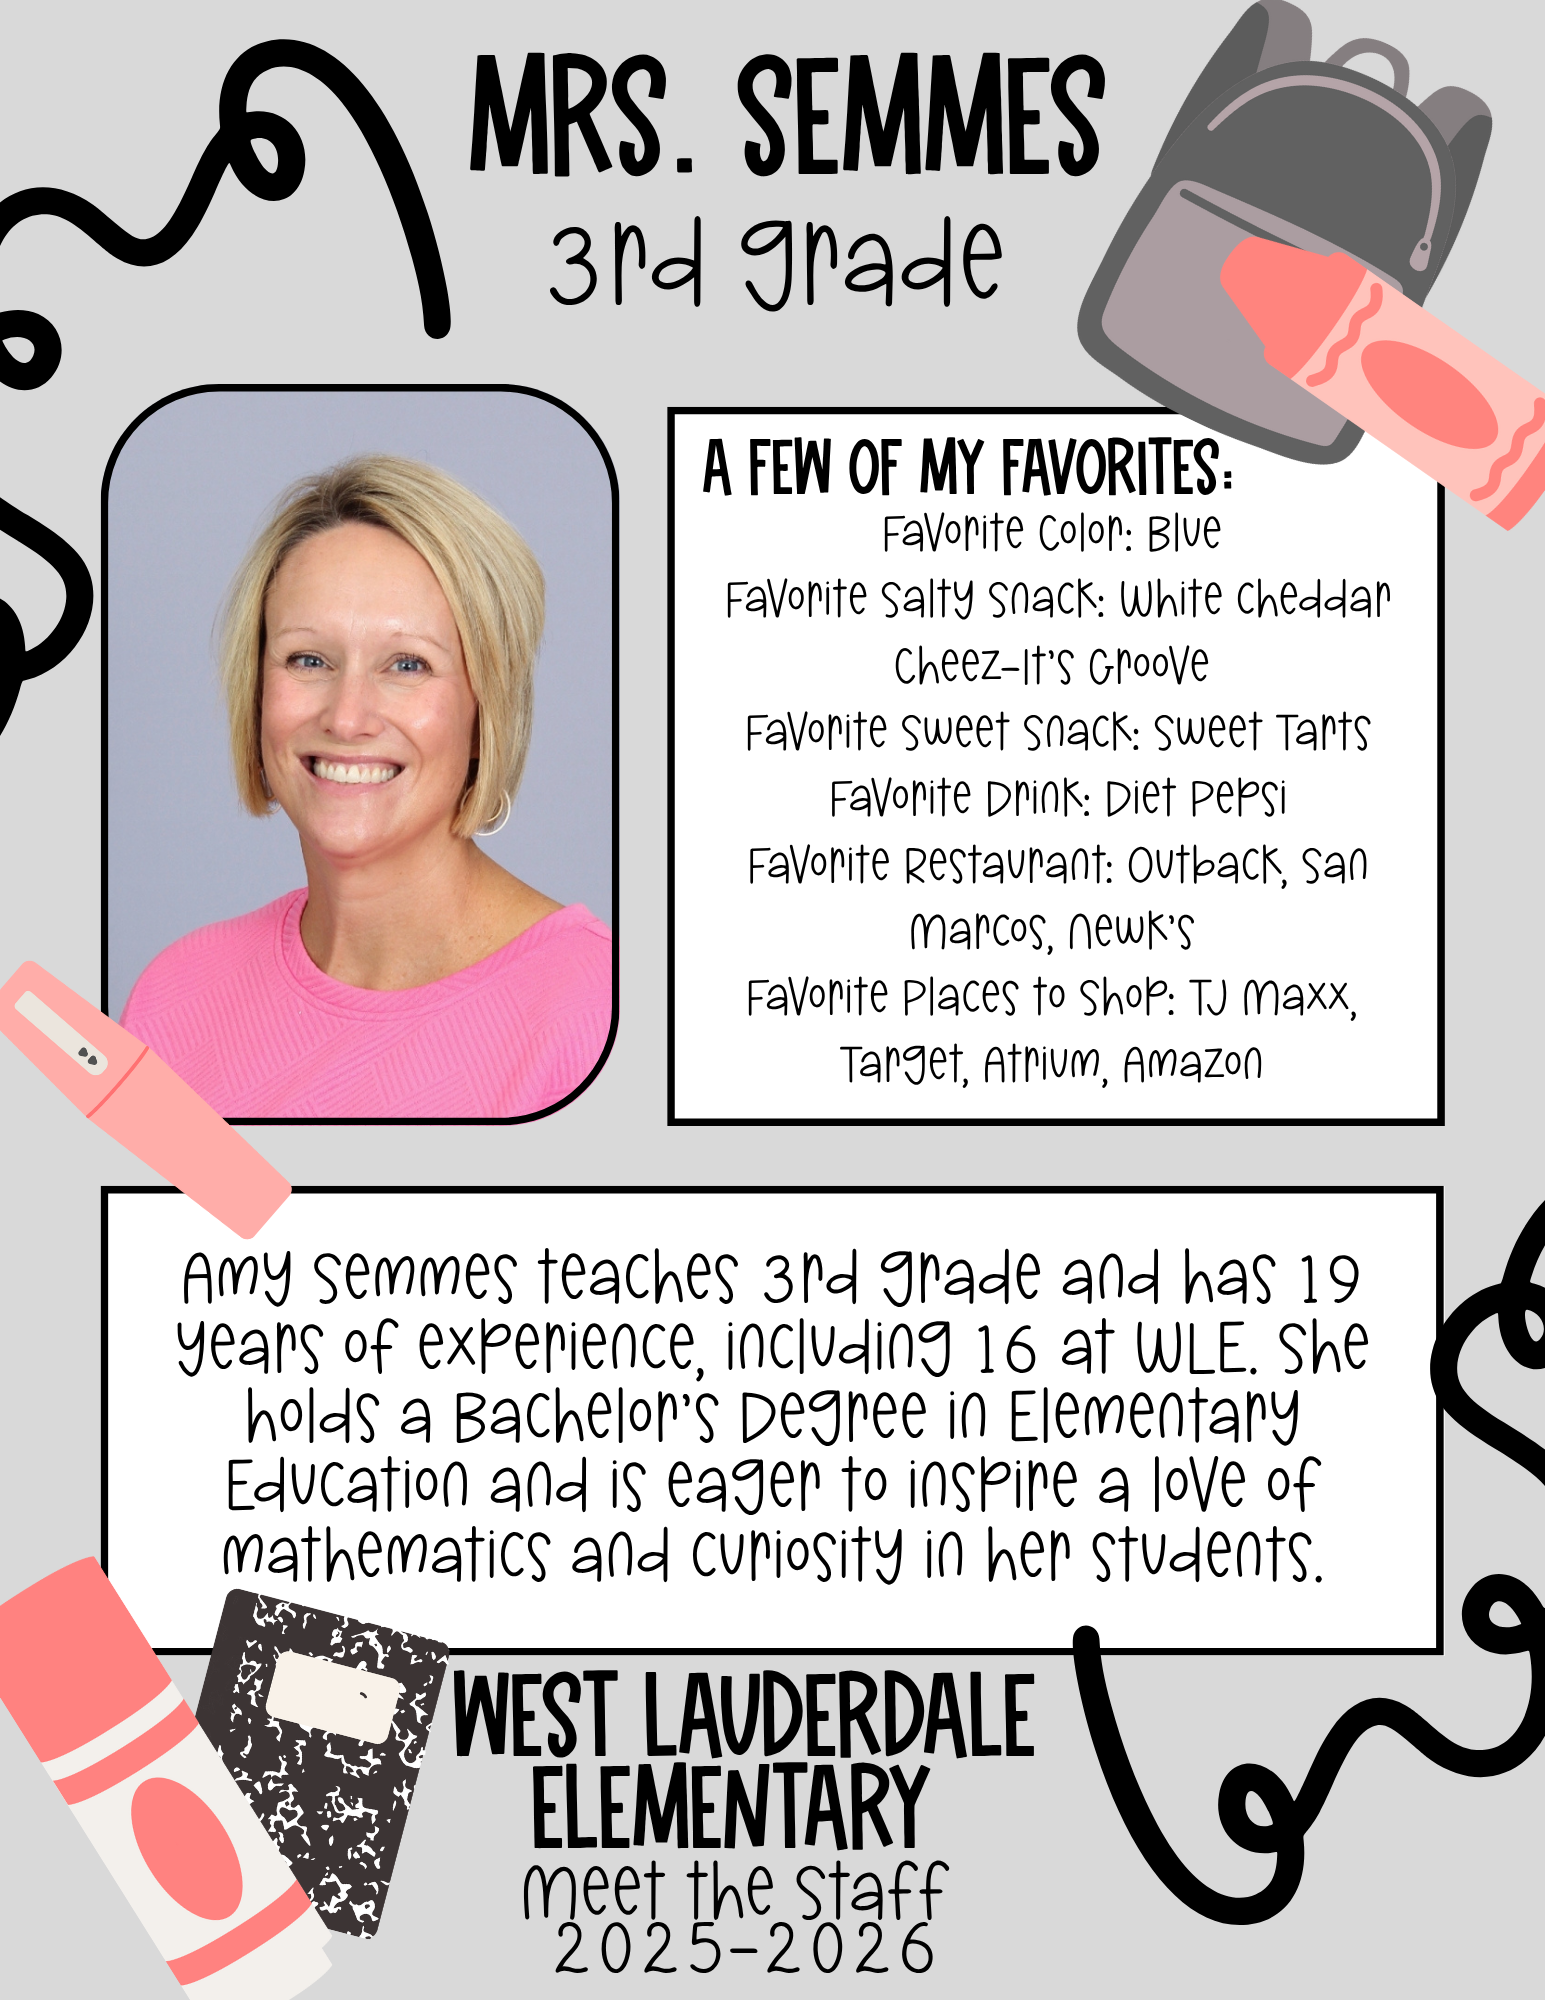 MRS. SEMMES
3rd grade
A FEW OF MY FAVORITES:
Favorite Color: Blue
Favorite Salty Snack: White Cheddar
Cheez-It's Groove
Favorite Sweet Snack: Sweet Tarts
Favorite Drink: Diet Pepsi
Favorite Restaurant: Outback, San
Marcos, Newk's
Favorite Places to Shop: TJ Maxx,
Target, Atrium, Amazon
Amy Semmes teaches 3rd grade and has 19
years of experience, including 16 at WLE. She
holds a Bachelor's Degree in Elementary
Education and is eager to inspire a love of
mathematics and curiosity in her students.
WEST LAUDERDALE
ELEMENTARY
Meet the Staff
2025-2026